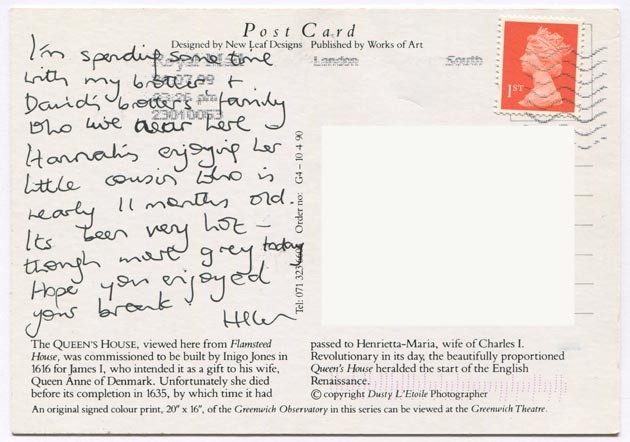 Post Card
Designed by New Leaf Designs Published by Works of Art
Royal Mail London South
03:26 pm
23010063
1ST
I'm spending some time
with my brother +
David's brother's family
who live near here
Hannah's enjoying her
little cousin who is
nearly 11 months old.
Its been very hot –
though more grey today
Hope you enjoyed
your break.
Helen
Tel: 071 323 Order no: G4–10 4 90
The QUEEN'S HOUSE, viewed here from Flamsteed
House, was commissioned to be built by Inigo Jones in
1616 for James I, who intended it as a gift to his wife,
Queen Anne of Denmark. Unfortunately she died
before its completion in 1635, by which time it had
passed to Henrietta-Maria, wife of Charles I.
Revolutionary in its day, the beautifully proportioned
Queen's House heralded the start of the English
Renaissance.
© copyright Dusty L'Etoile Photographer
An original signed colour print, 20" x 16", of the Greenwich Observatory in this series can be viewed at the Greenwich Theatre.